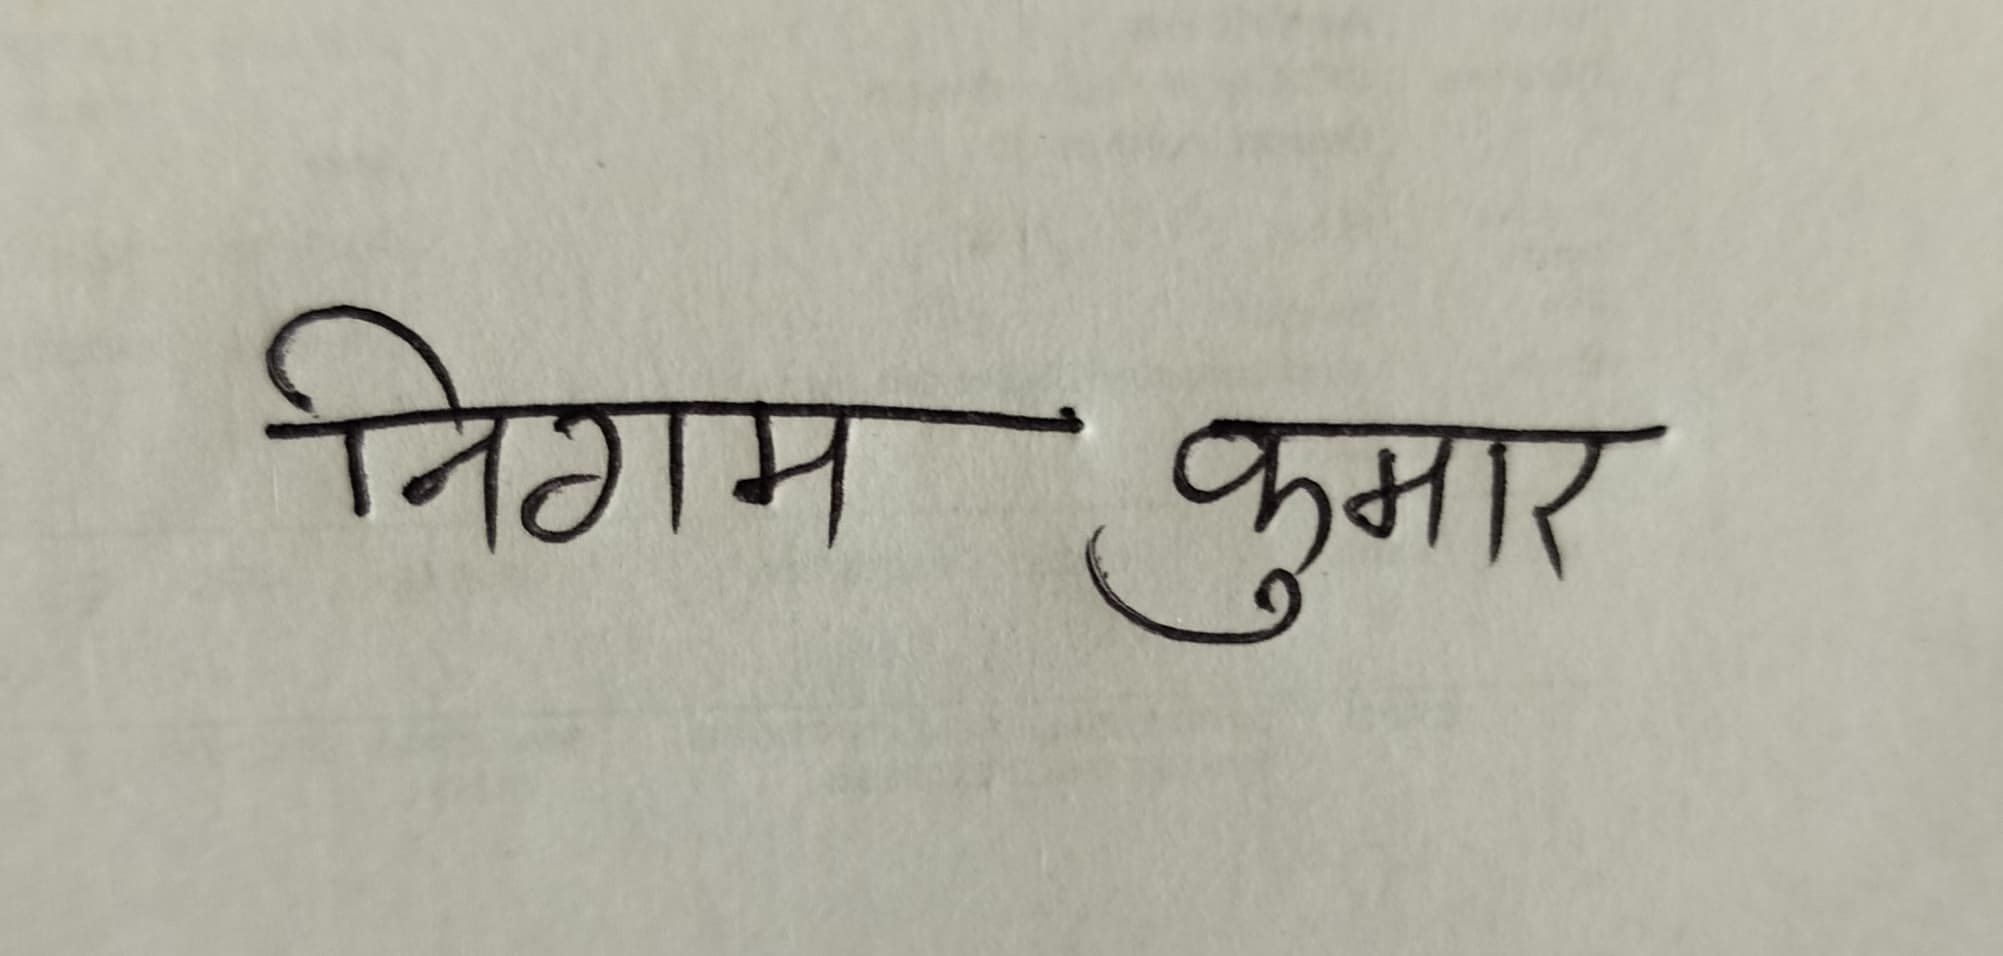 निगम कुमार